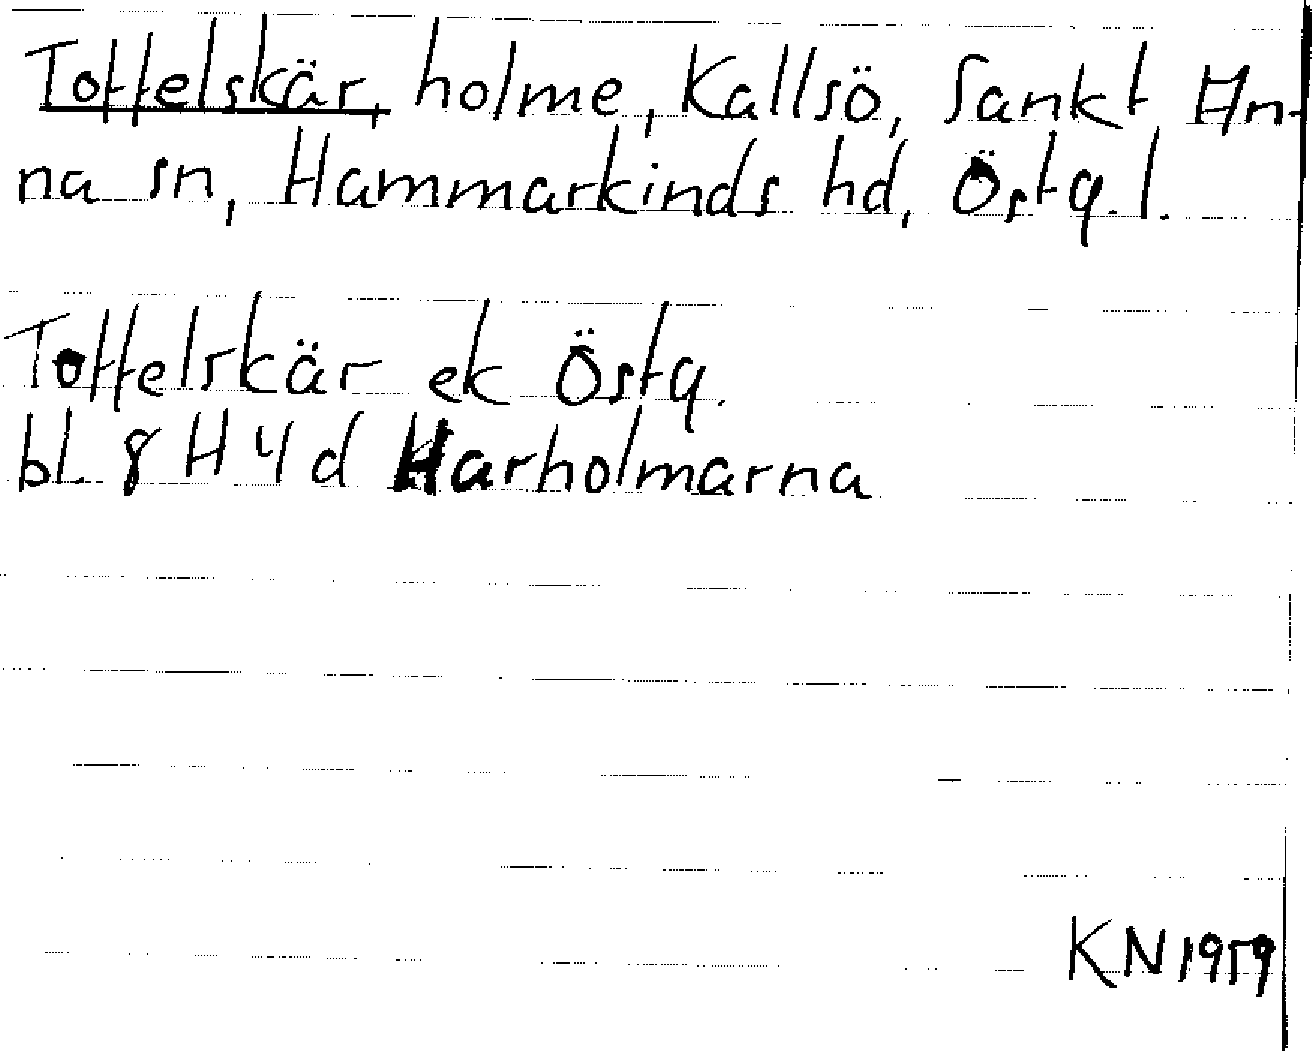 Toffelskär, holme, Kallsö, Sankt An-
na sn, Hammarkinds hd, Östg. l.
Toffelskär ek Östg.
bl 8 H 4 d Harholmarna
KN 1959